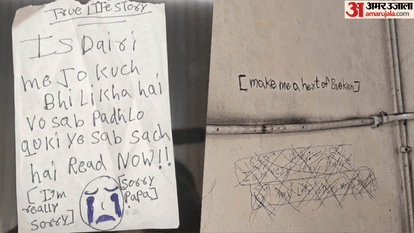 True Life Story
Is Dairi
me Jo kuch
Bhi Likha hai
Vo sab Padhlo
quki ye sab sach
hai Read Now!!
[I'm
really
sorry]
[Sorry
Papa]
अमर उजाला
amarujala.com
[make me a hert of Broken]